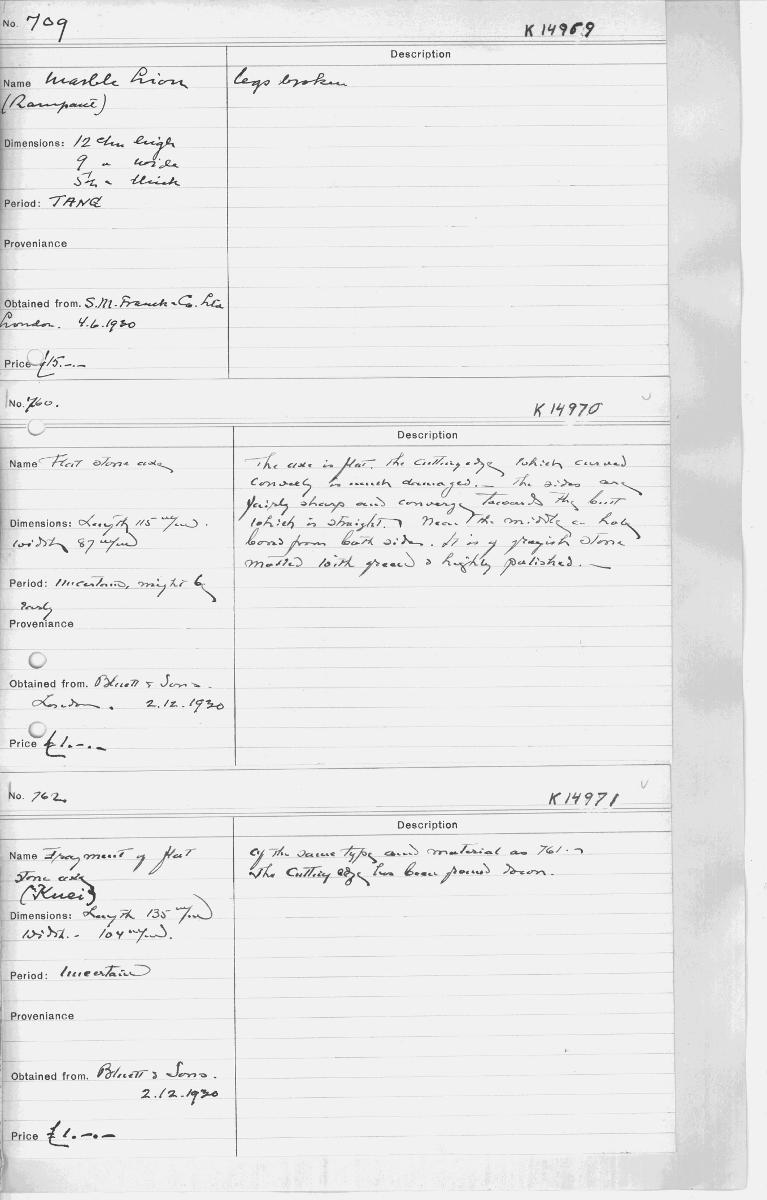 No. 709
K 14969
Description
Name Marble Lion
legs broken
(Rampant)
Dimensions: 12 c/m high
9 " wide
5½ " thick
Period: TANG
Proveniance
Obtained from. S.M. Franck & Co. Ltd
London. 4.6.1930
Price £15.-.-
No. 760.
K 14970
Description
Name Flat stone axe
The axe is flat. The cutting edge which curved
convexly is much damaged. — The sides are
fairly sharp and converge towards the butt
Dimensions: Length 115 m/m.
which is straight. Near the middle a hole
width 87 m/m
bored from both sides. It is of greyish stone
Period: Uncertain, might be
motled with green & highly polished. —
early
Proveniance
Obtained from. Bluett & Sons.
London. 2.12.1930
Price £1.-.-
No. 762.
K 14971
Description
Name Fragment of flat
Of the same type and material as 761.-
stone axe
The cutting edge has been ground down.
(Kuei)
Dimensions: Length 135 m/m
Width.- 104 m/m.
Period: Uncertain
Proveniance
Obtained from. Bluett & Sons.
2.12.1930
Price £1.-.-